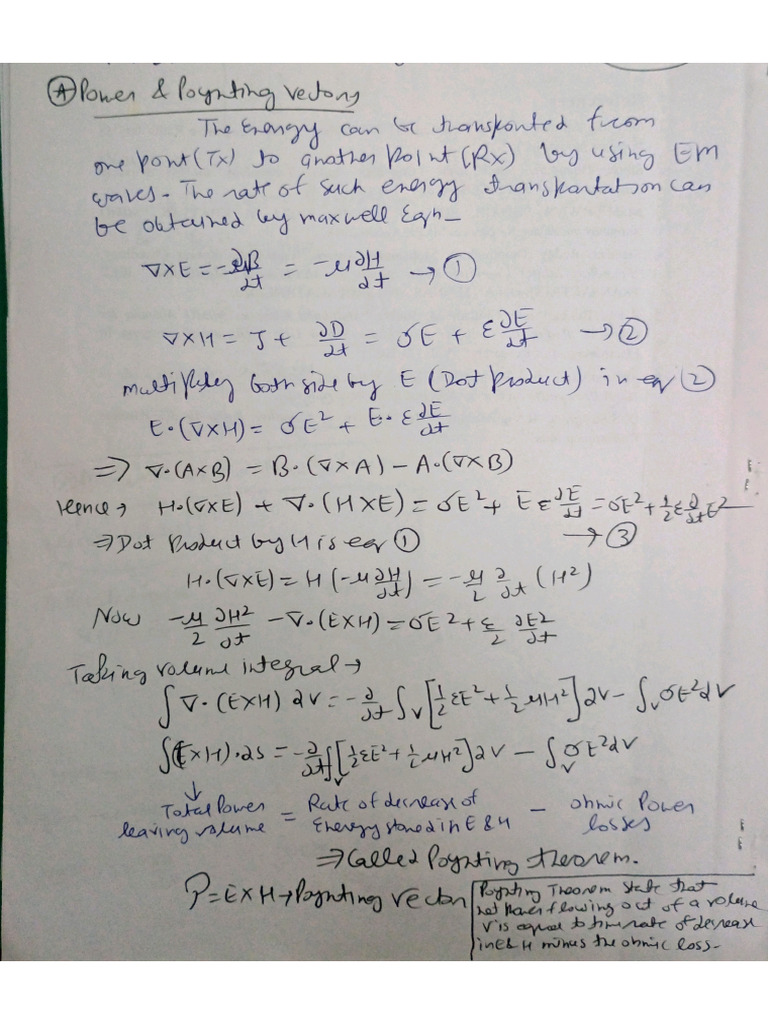 Ⓐ Power & Poynting vectors
The Energy can be transported from
one point (Tx) to another point (Rx) by using EM
waves - The rate of such energy transportation can
be obtained by maxwell Eqn -
∇×E = -∂B/∂t = -μ∂H/∂t → ①
∇×H = J + ∂D/∂t = σE + ε∂E/∂t → ②
multipley both side by E (Dot Product) in eq ②
E·(∇×H) = σE² + E·ε∂E/∂t
⇒ ∇·(A×B) = B·(∇×A) - A·(∇×B)
Hence → H·(∇×E) + ∇·(H×E) = σE² + Eε∂E/∂t = σE² + ½ε∂/∂t E²
⇒ Dot Product by H is eq ① → ③
H·(∇×E) = H(-μ∂H/∂t) = -μ/2 ∂/∂t (H²)
Now -μ/2 ∂H²/∂t - ∇·(E×H) = σE² + ε/2 ∂E²/∂t
Taking volume integral →
∫∇·(E×H) dv = -∂/∂t ∫v [½εE² + ½μH²] dv - ∫v σE² dv
∫(E×H)·ds = -∂/∂t ∫v [½εE² + ½μH²] dv - ∫v σE² dv
↓
Total Power leaving volume = Rate of decrease of Energy stored in E & H - ohmic Power losses
⇒ Called Poynting theorem.
P = E×H → Poynting vector
Poynting Theorem state that
net power flowing out of a volume
v is equal to time rate of decrease
in E & H minus the ohmic loss -